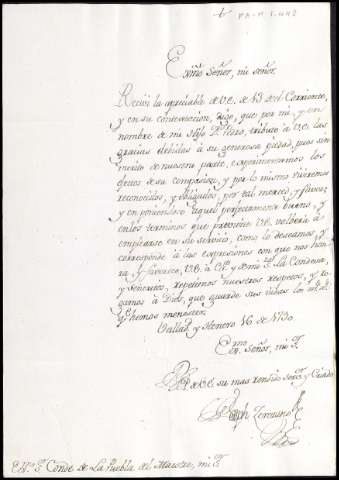 Exmo Señor, mi señor.
Recivi la apreciable de V.E. de 13 del Corriente,
y en su contextacion, digo, que por mi, y en
nombre de mi hijo Dn Pedro, tributo à V.E. las
gracias debidas à su generosa piedad, pues sin
merito de nuestra parte, experimentamos los
efectos de su compasion, y por lo mismo viviremos
reconocidos, y obligados, por tal merced, y favor
y en particular aquel perfectamente bueno, y
en los terminos que previene V.E. volberà à
emplearse en su servicio, como lo deseamos, y
corresponde à las expresiones con que nos hon
ra, y favorece, V.E. à Cª y mi Sª la Condesa,
y Señoritos, repetimos nuestros respetos, y ro
gamos à Dios, que guarde sus vidas los ms as
q. hemos menester.
Vallad. y Henero 16 de 1790
Exmo Señor, mi Sr
B. de V.E. su mas rendido Servr y Criado
Joseph
Exmo Sr Conde de La Puebla del Maestre, mi Sr